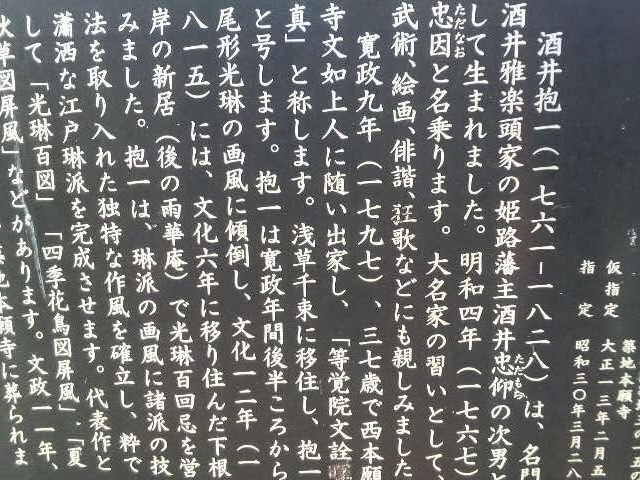 三の一五の
築地本願寺
仮指定 大正一三年二月五
指定 昭和三〇年三月二八
酒井抱一(一七六一-一八二八)は、名門
酒井雅楽頭家の姫路藩主酒井忠仰の次男と
ただもち
して生まれました。明和四年(一七六七)
忠因と名乗ります。大名家の習いとして、
ただなお
武術、絵画、俳諧、狂歌などにも親しみました
寛政九年(一七九七)、三七歳で西本願
寺文如上人に随い出家し、「等覚院文詮
真」と称します。浅草千束に移住し、抱一
と号します。抱一は寛政年間後半ころから
尾形光琳の画風に傾倒し、文化一二年(一
八一五)には、文化六年に移り住んだ下根
岸の新居(後の雨華庵)で光琳百回忌を営
みました。抱一は、琳派の画風に諸派の技
法を取り入れた独特な作風を確立し、粋で
瀟洒な江戸琳派を完成させます。代表作と
して「光琳百図」「四季花鳥図屏風」・「夏
秋草図屏風」などがあります。文政一一年、
築地本願寺に葬られま